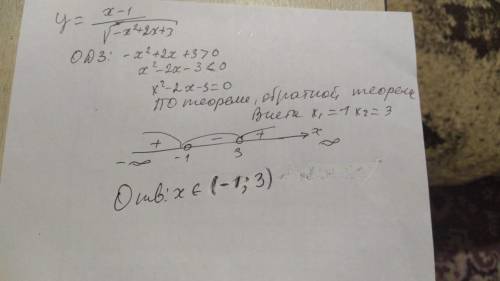 y = x-1 / √-x²+2x+3
ОДЗ: -x²+2x+3>0
x²-2x-3<0
x²-2x-3=0
По теореме, обратной теореме
Виета x₁=-1 x₂=3
+ - + x
-∞ -1 3 ∞
Отв: x ∈ (-1; 3)